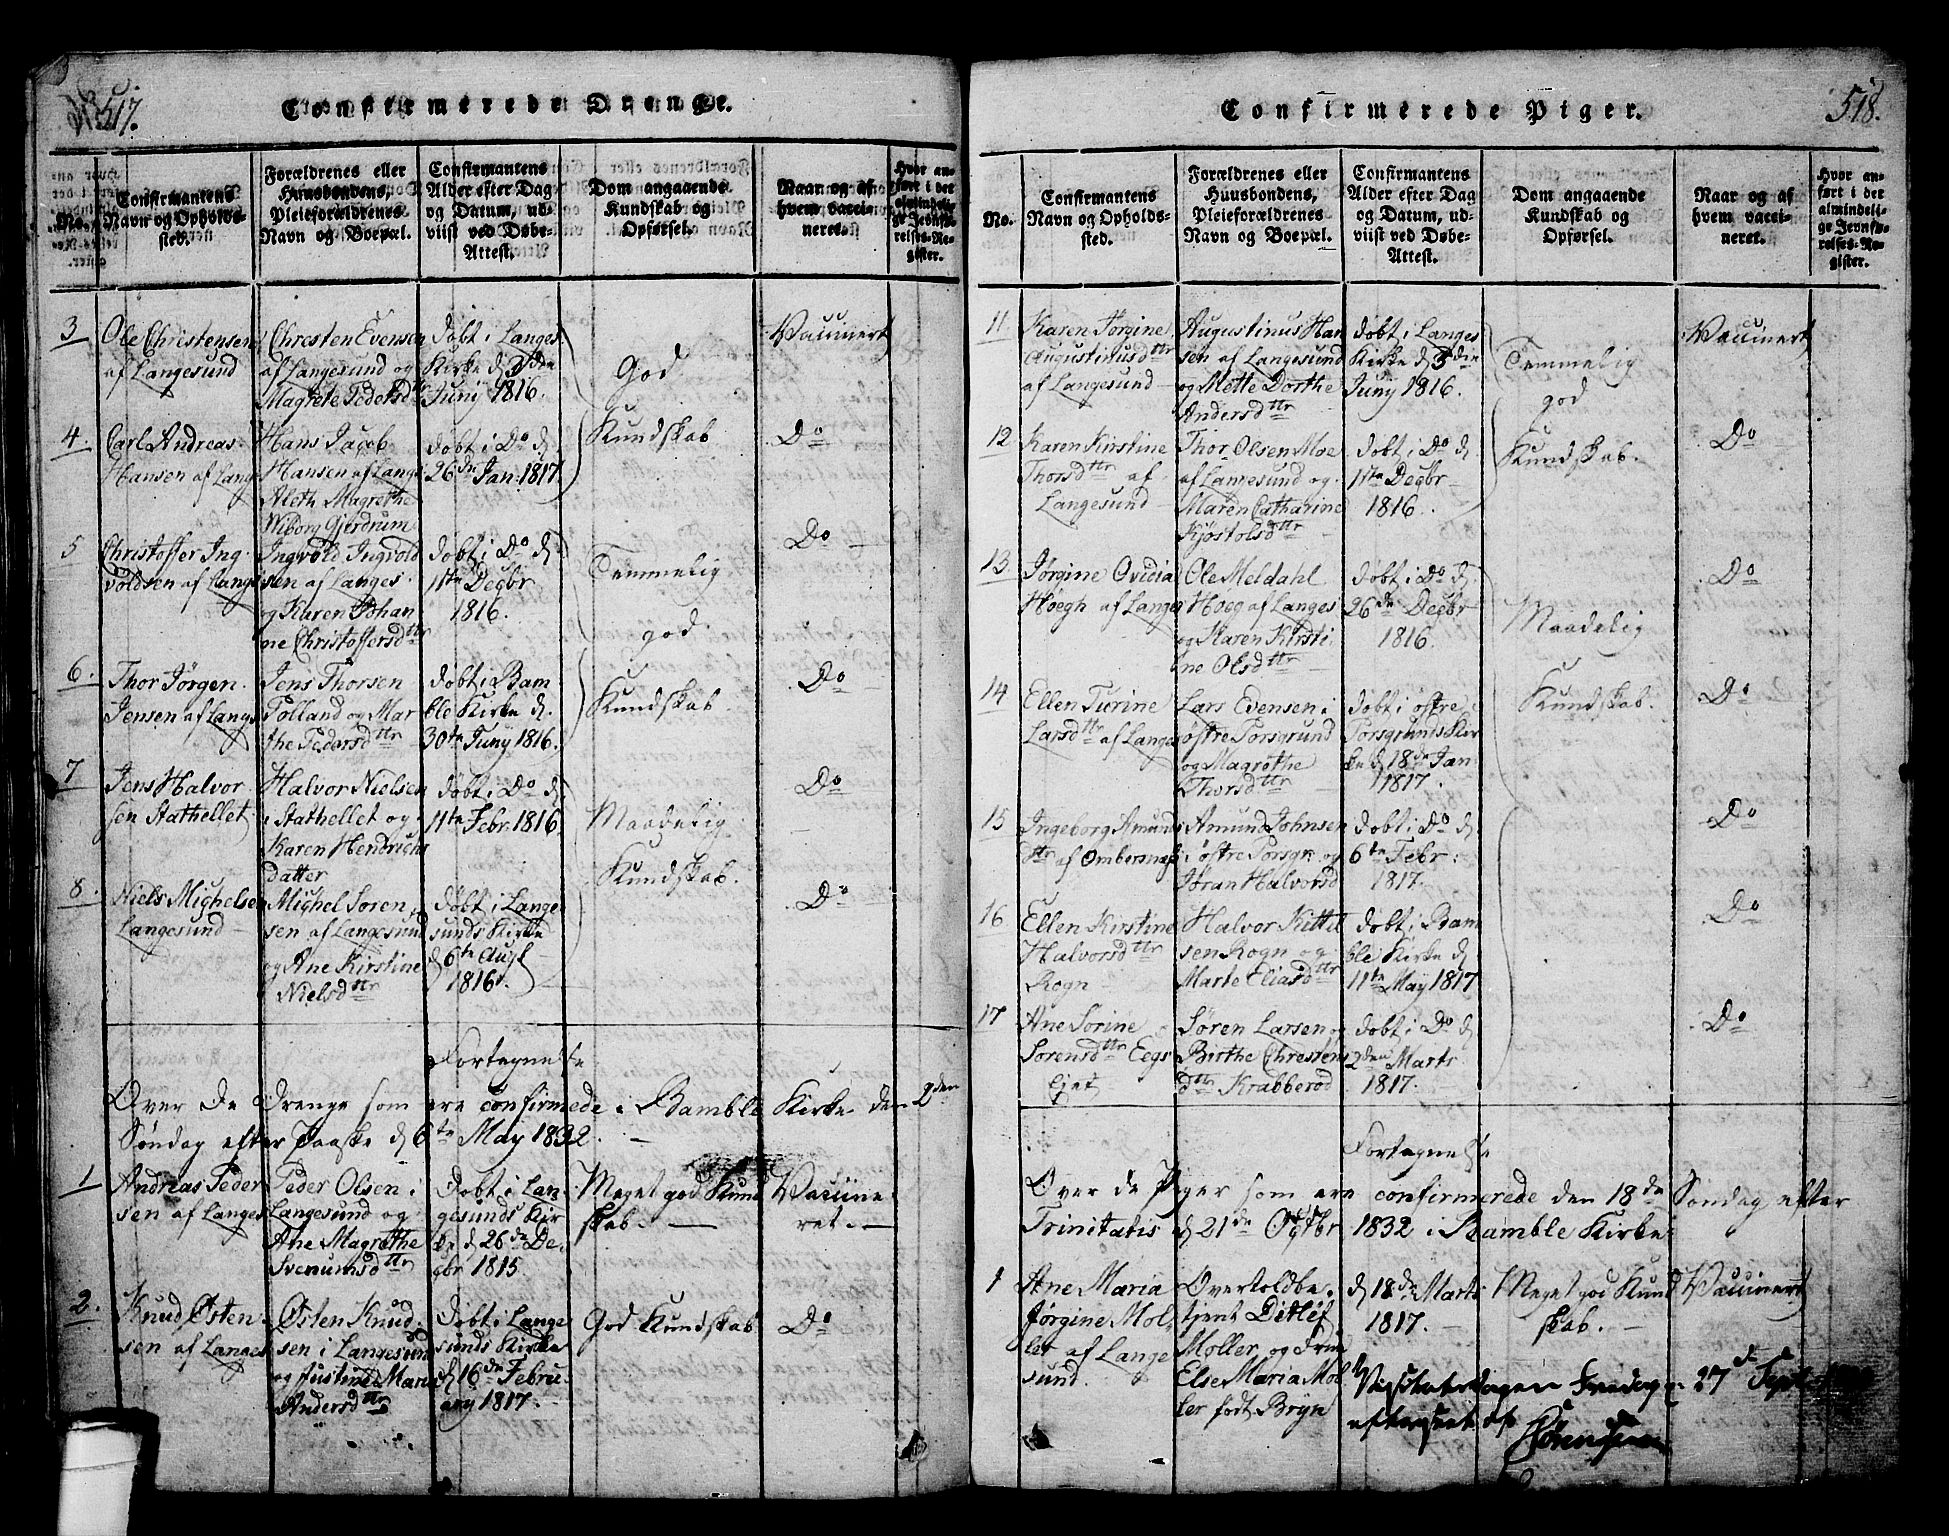 517.
Confirmerede Drenge.
No.
Confirmantens
Navn og Opholds-
sted.
Forældrenes eller
Huusbondens,
Pleieforældrenes
Navn og Boepæl.
Confirmantens
Alder efter Dag
og Datum, ud-
viist ved Døbe-
Attest.
Dom angaaende
Kundskab og
Opførsel.
Naar og af
hvem vacci-
neret.
Hvor an-
ført i det
almindeli-
ge Jevnfø-
relses-Re-
gister.
3
Ole Christensen
af Langesund
Christen Evensen
af Langesund og
Magrete Pedersdttr
døbt i Langes
Kirke d 3die
Juny 1816.
God
Kundskab
Vaccinert
4.
Carl Andreas
Hansen af Lang
Hans Jacob
Hansen af Langs
Aleth Magrethe
Wiborg Gjerdrum
døbt i Do d
26de Jan: 1817
Do
5
Christoffer Ing
voldsen af Langes
Ingvold Ingvold
sen af Langes
og Karen Johan
ne Christoffersdttr
døbt i Do d
11te Decbr
1816.
Temmelig
god
Kundskab
Do
6.
Thor Jørgen
Jensen af Langs
Jens Thorsen
Tolland og Mar
the Pedersdttr
døbt i Bam
ble Kirke d.
30te Juny 1816.
Do
7
Jens Halvor
sen Stathellet
Halvor Nielsen
i Stathellet og
Karen Hendrichs
datter
døbt i Do d
11te Febr. 1816
Maadelig
Kundskab.
Do
8.
Niels Mighelsen
Langesund
Mighel Søren
sen af Langesund
og Ane Kirstine
Nielsdttr
Døbt i Lange
sunds Kirke
d 6te Augl
1816.
Do
Fortegnelse
Over de Drenge som ere confirmede i Bamble Kirke den 2den
Søndag efter Paaske d 6te May 1832.
1
Andreas Peder
sen af Langes
Peder Olsen i
Langesund og
Ane Magrethe
Svenumsdttr
Døbt i Lan
gesunds Kir
ke d 26de De
cbr 1815.
Meget god Kund
skab.
Vaccine
ret.
2.
Knud Østen
sen af Langes
Østen Knud
sen i Langesund
og Justine Maria
Andersdttr
Døbt i Lange
sunds Kirke
d 16de Febru
ary 1817.
God Kundskab
Do
518.
Confirmerede Piger.
No.
Confirmantens
Navn og Opholds-
sted.
Forældrenes eller
Huusbondens,
Pleieforældrenes
Navn og Boepæl.
Confirmantens
Alder efter Dag
og Datum, ud-
viist ved Døbe-
Attest.
Dom angaaende
Kundskab og
Opførsel.
Naar og af
hvem vacci-
neret.
Hvor an-
ført i det
almindeli-
ge Jevnfø-
relses-Re-
gister.
11
Karen Jørgine
Augustinusdttr
af Langesund
Augustinus Han
sen af Langesund
og Mette Dorthe
Andersdttr
døbt i Langes
Kirke d 3die
Juny 1816.
Temmelig
god
Kundskab.
Vaccinert
12
Karen Kirstine
Thorsdttr af
Langesund
Thor Olsen Moe
af Langesund og
Maren Catharine
Kjøstolsdttr
døbt i Do d
11te Decbr
1816.
Do
13
Jørgine Ovidia
Høegh af Langes
Ole Meldahl
Høeg af Langes
og Karen Kirsti
ne Olsdttr
døbt i Do d.
26de Decbr
1816.
Maadelig
Kundskab.
Do
14
Ellen Turine
Larsdttr af Langes
Lars Evensen i
østre Porsgrund
og Magrethe
Thorsdttr
døbt i østre
Porsgrunds Kir
ke d 18de Jan
1817.
Do
15
Ingeborg Amunds
dttr af Ombersnæs
Amund Johnsen
i østre Porsgr: og
Jøran Halvorsd
døbt i Do d
6te Febr:
1817.
Do
16
Ellen Kirstine
Halvorsdttr
Rogn
Halvor Kittil
sen Rogn og
Marte Eliasdttr
døbt i Bam
ble Kirke d
11te May 1817
Do
17
Ane Sørine
Sørensdttr Eegs
Eget
Søren Larsen og
Birthe Christens
dttr Krabberød
døbt i Do d
2den Marts
1817.
Do
Fortegnelse
Over de Piger som ere confirmerede den 18de Søndag efter
Trinitatis d 21de Octbr 1832 i Bamble Kirke
1
Ane Maria
Jørgine Mol
ler af Lange
sund.
Overtoldbe
tjent Ditlef
Moller og Frue
Else Maria Mol
ler født Bryn
d 18de Marts
1817.
Meget god Kund
skab.
Vaccinert
27de Sept
efterseet af
Sørenssen